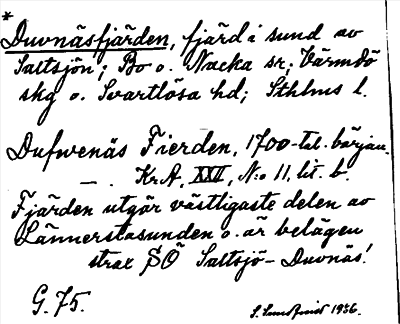 *
Duvnäsfjärden, fjärd i sund av
Saltsjön; Bo o. Nacka sr; Värmdö
skg o. Svartlösa hd; Sthlms l.
Dufwenäs Fierden, 1700-tal. början.
— . KrA, XXII, N:o 11, lit. b.
Fjärden utgör västligaste delen av
Lännerstasunden o. är belägen
strax SÖ Saltsjö-Duvnäs!
G. 75.
1936.